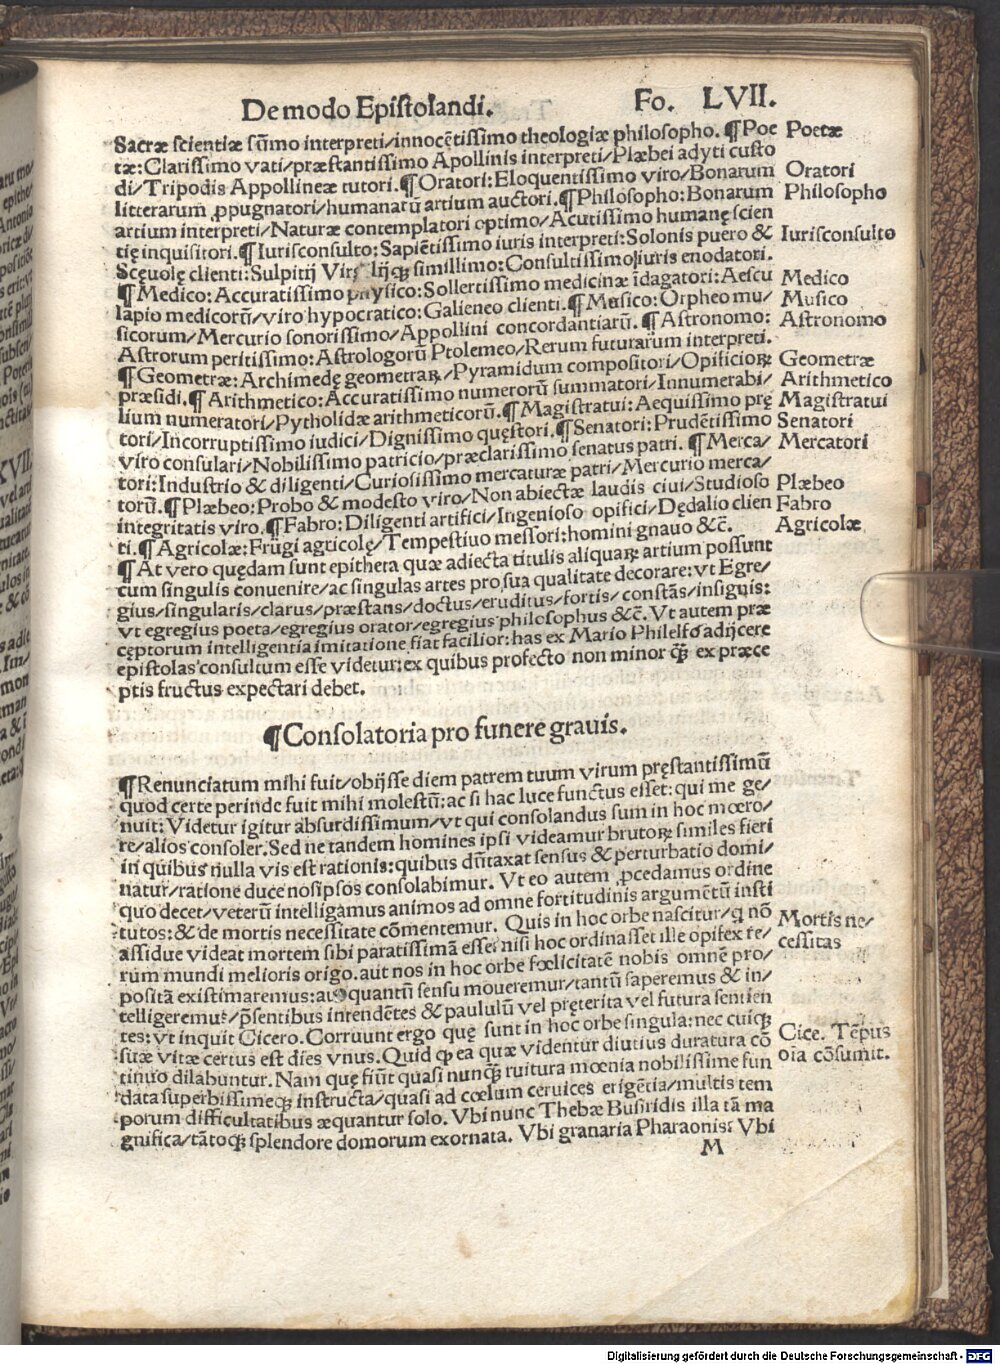 De modo Epistolandi. Fo. LVII.
Sacræ scientiæ sūmo interpreti/innocētissimo theologiæ philosopho. ¶Poe Poetæ
tæ: Clarissimo vati/præstantissimo Apollinis interpreti/Plæbei adyti custo
di/Tripodis Appollineæ tutori. ¶Oratori: Eloquentissimo viro/Bonarum Oratori
litterarum ꝓpugnatori/humanarū artium auctori. ¶Philosopho: Bonarum Philosopho
artium interpreti/Naturæ contemplatori optimo/Acutissimo humanę scien
tię inquisitori. ¶Iurisconsulto: Sapiētissimo iuris interpreti: Solonis puero & Iurisconsulto
Scęuolę clienti: Sulpitij simillimo: Consultissimo iuris enodatori.
¶Medico: Accuratissimo physico: Sollertissimo medicinæ īdagatori: Aescu Medico
lapio medicorū/viro hypocratico: Galieneo clienti. ¶Musico: Orpheo mu/ Musico
sicorum/Mercurio sonorissimo/Appollini concordantiarū. ¶Astronomo: Astronomo
Astrorum peritissimo: Astrologorū Ptolemeo/Rerum futurarum interpreti.
¶Geometræ: Archimedę geometraꝝ/Pyramidum compositori/Opificioꝝ Geometræ
præsidi. ¶Arithmetico: Accuratissimo numerorū summatori/Innumerabi/ Arithmetico
lium numeratori/Pytholidæ arithmeticorū. ¶Magistratui: Aequissimo prę Magistratui
tori/Incorruptissimo iudici/Dignissimo quęstori. ¶Senatori: Prudētissimo Senatori
viro consulari/Nobilissimo patricio/præclarissimo senatus patri. ¶Merca/ Mercatori
tori: Industrio & diligenti/Curiosissimo mercaturæ patri/Mercurio merca/
torū. ¶Plæbeo: Probo & modesto viro/Non abiectæ laudis ciui/Studioso Plæbeo
integritatis viro. ¶Fabro: Diligenti artifici/Ingenioso opifici/Dędalio clien Fabro
ti. ¶Agricolæ: Frugi agricolę/Tempestiuo messori: homini gnauo &c̄. Agricolæ
¶At vero quędam sunt epitheta quæ adiecta titulis aliquaꝝ artium possunt
cum singulis conuenire/ac singulas artes pro sua qualitate decorare: vt Egre/
gius/singularis/clarus/præstans/doctus/eruditus/fortis/constās/insignis:
vt egregius poeta/egregius orator/egregius philosophus &c̄. Vt autem præ
cęptorum intelligentia imitatione fiat facilior: has ex Mario Philelfo adijcere
epistolas consultum esse videtur: ex quibus profecto non minor ꝗ̄ ex præce
ptis fructus expectari debet.
¶Consolatoria pro funere grauis.
¶Renunciatum mihi fuit/obijsse diem patrem tuum virum pręstantissimū
quod certe perinde fuit mihi molestū: ac si hac luce functus esset: qui me ge/
nuit: Videtur igitur absurdissimum/vt qui consolandus sum in hoc mœro/
re/alios consoler. Sed ne tandem homines ipsi videamur brutoꝝ similes fieri
in quibus nulla vis est rationis: quibus dūtaxat sensus & perturbatio domi/
natur/ratione duce nosipsos consolabimur. Vt eo autem ꝓcedamus ordine
quo decet/veterū intelligamus animos ad omne fortitudinis argumētū insti
tutos: & de mortis necessitate cōmentemur. Quis in hoc orbe nascitur/q nō Mortis ne/
assidue videat mortem sibi paratissimā esse: nisi hoc ordinasset ille opifex re/ cessitas
rum mundi melioris origo. aut nos in hoc orbe fœlicitatē nobis omnē pro/
positā existimaremus: aut quantū sensu moueremur/tantū saperemus & in/
telligeremus/p̄sentibus intendētes & paululū vel pręterita vel futura sentien
tes: vt inquit Cicero. Corruunt ergo quę sunt in hoc orbe singula: nec cuiꝗ Cice. Tēpus
suæ vitæ certus est dies vnus. Quid ꝙ ea quæ videntur diutius duratura cō oīa cōsumit.
tinuo dilabuntur. Nam quę fiūt quasi nunꝗ̄ ruitura mœnia nobilissime fun
data superbissimeqꝫ instructa/quasi ad cœlum ceruices erigētia/multis tem
porum difficultatibus æquantur solo. Vbi nunc Thebæ Busiridis illa tā ma
gnifica/tātoqꝫ splendore domorum exornata. Vbi granaria Pharaonis: Vbi
M
Digitalisierung gefördert durch die Deutsche Forschungsgemeinschaft - DFG